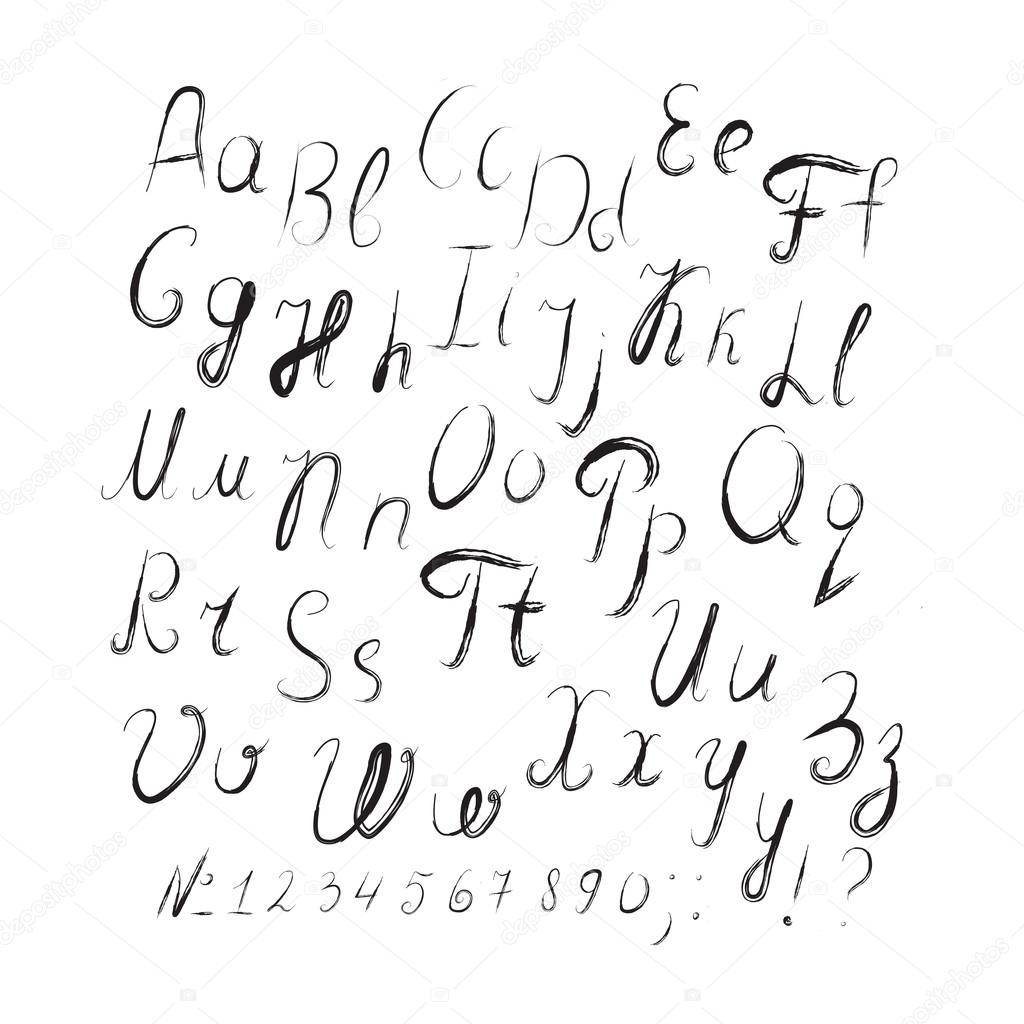 Aa Bb Cc Dd Ee Ff
Gg Hh Ii Jj Kk Ll
Mm Nn Oo Pp Qq
Rr Ss Tt Uu
Vv Ww Xx Yy Zz
№ 1 2 3 4 5 6 7 8 9 0 ; : ! ?